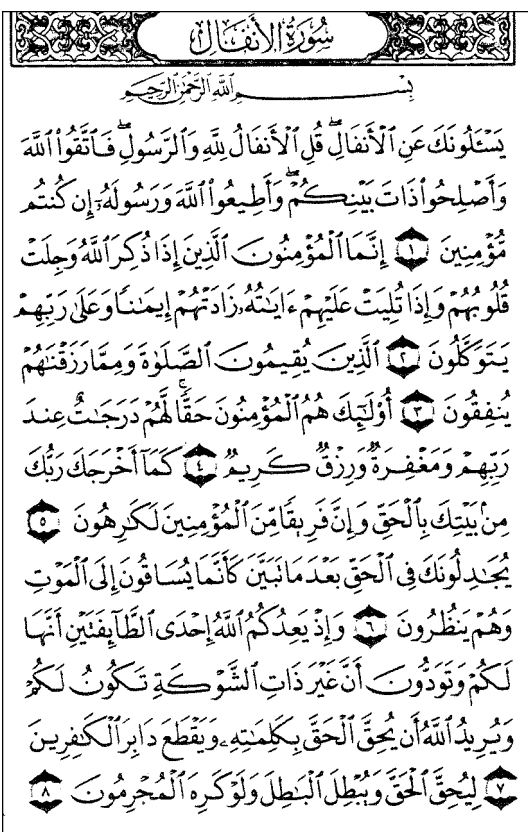 سُورَةُ الْأَنفَالِ
بِسْمِ اللَّهِ الرَّحْمَٰنِ الرَّحِيمِ
يَسْـَٔلُونَكَ عَنِ ٱلْأَنفَالِ ۖ قُلِ ٱلْأَنفَالُ لِلَّهِ وَٱلرَّسُولِ ۖ فَٱتَّقُوا۟ ٱللَّهَ
وَأَصْلِحُوا۟ ذَاتَ بَيْنِكُمْ ۖ وَأَطِيعُوا۟ ٱللَّهَ وَرَسُولَهُۥٓ إِن كُنتُم
مُّؤْمِنِينَ ١ إِنَّمَا ٱلْمُؤْمِنُونَ ٱلَّذِينَ إِذَا ذُكِرَ ٱللَّهُ وَجِلَتْ
قُلُوبُهُمْ وَإِذَا تُلِيَتْ عَلَيْهِمْ ءَايَٰتُهُۥ زَادَتْهُمْ إِيمَٰنًا وَعَلَىٰ رَبِّهِمْ
يَتَوَكَّلُونَ ٢ ٱلَّذِينَ يُقِيمُونَ ٱلصَّلَوٰةَ وَمِمَّا رَزَقْنَٰهُمْ
يُنفِقُونَ ٣ أُو۟لَٰٓئِكَ هُمُ ٱلْمُؤْمِنُونَ حَقًّا ۚ لَّهُمْ دَرَجَٰتٌ عِندَ
رَبِّهِمْ وَمَغْفِرَةٌ وَرِزْقٌ كَرِيمٌ ٤ كَمَآ أَخْرَجَكَ رَبُّكَ
مِنۢ بَيْتِكَ بِٱلْحَقِّ وَإِنَّ فَرِيقًا مِّنَ ٱلْمُؤْمِنِينَ لَكَٰرِهُونَ ٥
يُجَٰدِلُونَكَ فِى ٱلْحَقِّ بَعْدَ مَا تَبَيَّنَ كَأَنَّمَا يُسَاقُونَ إِلَى ٱلْمَوْتِ
وَهُمْ يَنظُرُونَ ٦ وَإِذْ يَعِدُكُمُ ٱللَّهُ إِحْدَى ٱلطَّآئِفَتَيْنِ أَنَّهَا
لَكُمْ وَتَوَدُّونَ أَنَّ غَيْرَ ذَاتِ ٱلشَّوْكَةِ تَكُونُ لَكُمْ
وَيُرِيدُ ٱللَّهُ أَن يُحِقَّ ٱلْحَقَّ بِكَلِمَٰتِهِۦ وَيَقْطَعَ دَابِرَ ٱلْكَٰفِرِينَ
٧ لِيُحِقَّ ٱلْحَقَّ وَيُبْطِلَ ٱلْبَٰطِلَ وَلَوْ كَرِهَ ٱلْمُجْرِمُونَ ٨